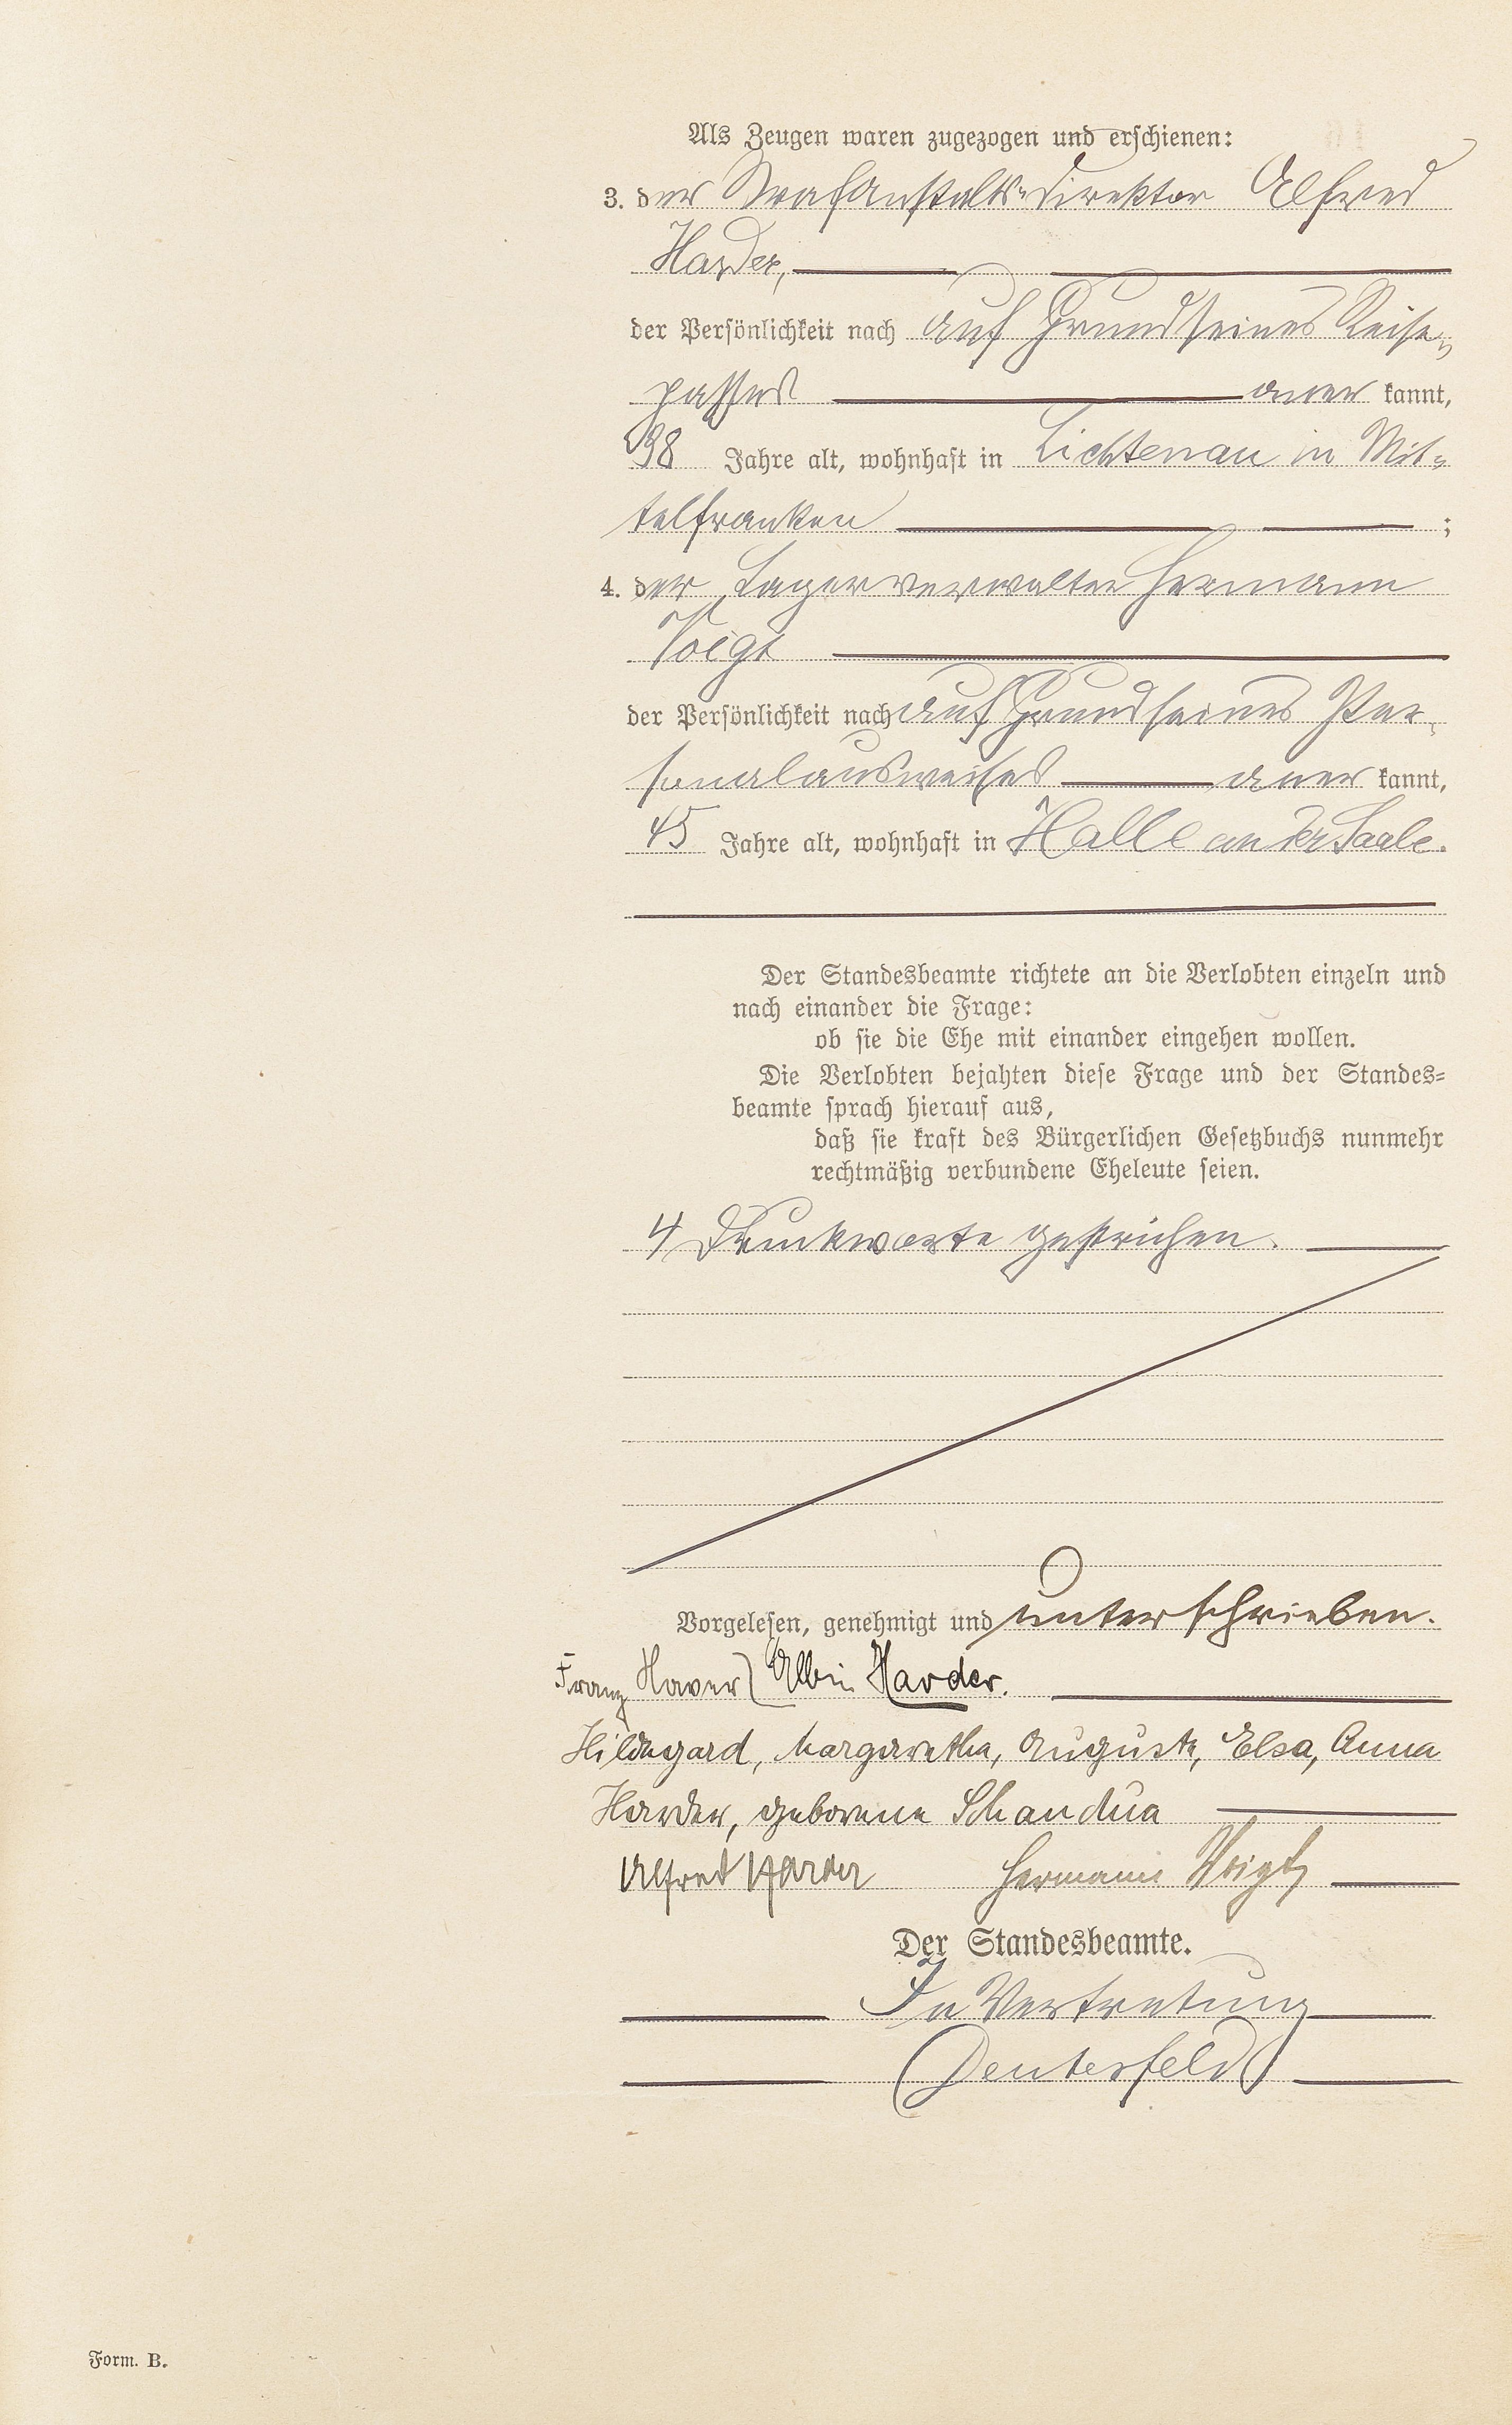 Als Zeugen waren zugezogen und erschienen:
3. der Strafanstalts-Direktor Alfred
Harder,
der Persönlichkeit nach auf Grund seines Reise-
passes aner kannt,
38 Jahre alt, wohnhaft in Lichtenau in Mit-
telfranken ;
4. der Lagerverwalter Hermann
Voigt
der Persönlichkeit nach auf Grund seines Per-
sonalausweises aner kannt,
45 Jahre alt, wohnhaft in Halle an der Saale.
Der Standesbeamte richtete an die Verlobten einzeln und
nach einander die Frage:
ob sie die Ehe mit einander eingehen wollen.
Die Verlobten bejahten diese Frage und der Standes-
beamte sprach hierauf aus,
daß sie kraft des Bürgerlichen Gesetzbuchs nunmehr
rechtmäßig verbundene Eheleute seien.
4 Druckworte gestrichen.
Vorgelesen, genehmigt und unterschrieben.
Franz Xaver) Albin Harder.
Hildegard, Margaretha, Auguste, Elsa, Anna
Harder, geborene Schandua
Alfred Harder Hermann Voigt
Der Standesbeamte.
In Vertretung
Deuterfeld
Form. B.